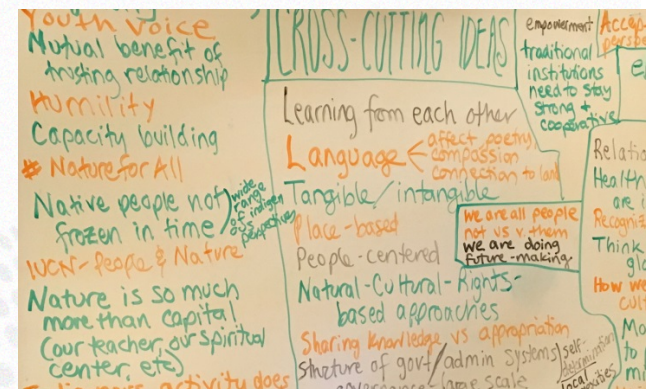 Youth Voice
Mutual benefit of
trusting relationship
Humility
Capacity building
# Nature for All
Native people not
frozen in time
wide
range
of
indigenous
perspective
IUCN - People & Nature
Nature is so much
more than capital
(our teacher, our spiritual
center, etc)
activity does
CROSS-CUTTING IDEAS
Learning from each other
Language
affect poetry
compassion
connection to land
Tangible/intangible
Place-based
People-centered
we are all people
not us v. them
we are doing
future-making
Natural-Cultural-Rights-
based approaches
Sharing knowledge vs appropriation
Structure of govt/admin systems/
self-
determination
local
scale
empowerment
traditional
institutions
need to stay
strong +
cooperative
Relatio
Health
are i
Recogniz
Think
glo
How we
cult
Mo
to